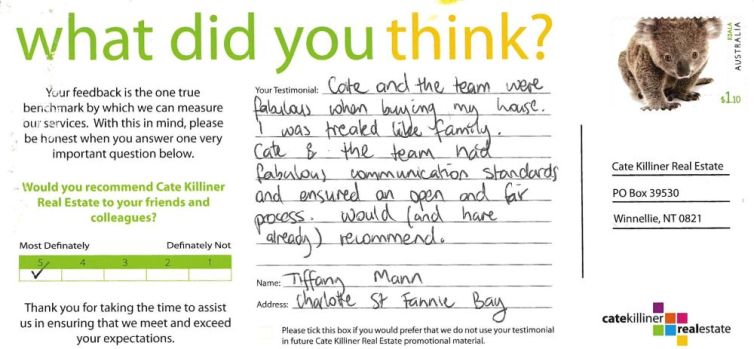 what did you think?
Your feedback is the one true
benchmark by which we can measure
our services. With this in mind, please
be honest when you answer one very
important question below.
Would you recommend Cate Killiner
Real Estate to your friends and
colleagues?
Most Definately Definately Not
5 4 3 2 1
Thank you for taking the time to assist
us in ensuring that we meet and exceed
your expectations.
Your Testimonial: Cate and the team were
fabulous when buying my house.
I was treated like family.
Cate & the team had
fabulous communication standards
and ensured an open and fair
process. Would (and have
already) recommend.
Name: Tiffany Mann
Address: Charlotte St Fannie Bay
Please tick this box if you would prefer that we do not use your testimonial
in future Cate Killiner Real Estate promotional material.
KOALA
AUSTRALIA
$1.10
Cate Killiner Real Estate
PO Box 39530
Winnellie, NT 0821
catekilliner
realestate